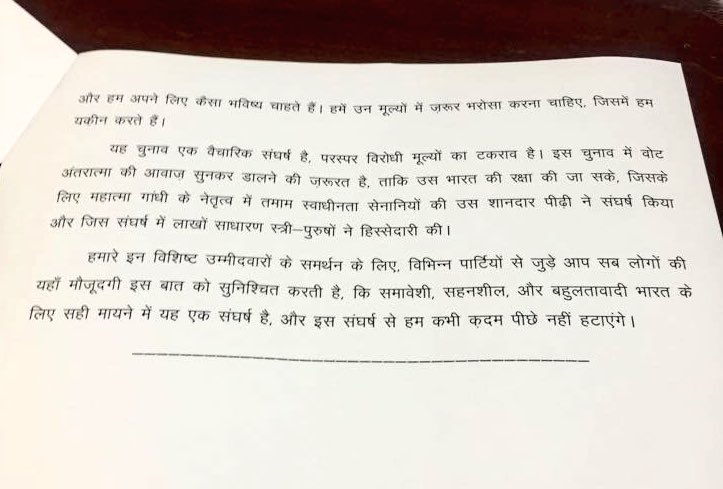 और हम अपने लिए कैसा भविष्य चाहते हैं। हमें उन मूल्यों में ज़रूर भरोसा करना चाहिए, जिसमें हम
यकीन करते हैं।
यह चुनाव एक वैचारिक संघर्ष है, परस्पर विरोधी मूल्यों का टकराव है। इस चुनाव में वोट
अंतरात्मा की आवाज़ सुनकर डालने की ज़रूरत है, ताकि उस भारत की रक्षा की जा सके, जिसके
लिए महात्मा गांधी के नेतृत्व में तमाम स्वाधीनता सेनानियों की उस शानदार पीढ़ी ने संघर्ष किया
और जिस संघर्ष में लाखों साधारण स्त्री–पुरुषों ने हिस्सेदारी की।
हमारे इन विशिष्ट उम्मीदवारों के समर्थन के लिए, विभिन्न पार्टियों से जुड़े आप सब लोगों की
यहाँ मौजूदगी इस बात को सुनिश्चित करती है, कि समावेशी, सहनशील, और बहुलतावादी भारत के
लिए सही मायने में यह एक संघर्ष है, और इस संघर्ष से हम कभी क़दम पीछे नहीं हटाएंगे।